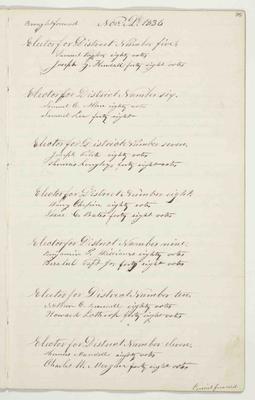 Brought forward Nov. 1836
Elector for District Number five
Samuel eighty votes
Joseph G. Kendall forty eight votes
Elector for District Number six
Samuel C. Allen eighty votes
Samuel Lee forty eight
Elector for District Number seven
Joseph eighty votes
Thomas Longley forty eight votes
Elector for District Number eight
Henry Chapin eighty votes
Isaac C. Bates forty eight votes
Elector for District Number nine
Benjamin P. Williams eighty votes
forty eight votes
Elector for District Number ten
Nathan C. eighty votes
Howard Lothrop forty eight votes
Elector for District Number eleven
Thomas Mandell eighty votes
Charles W. Morgan forty eight votes
Carried forward